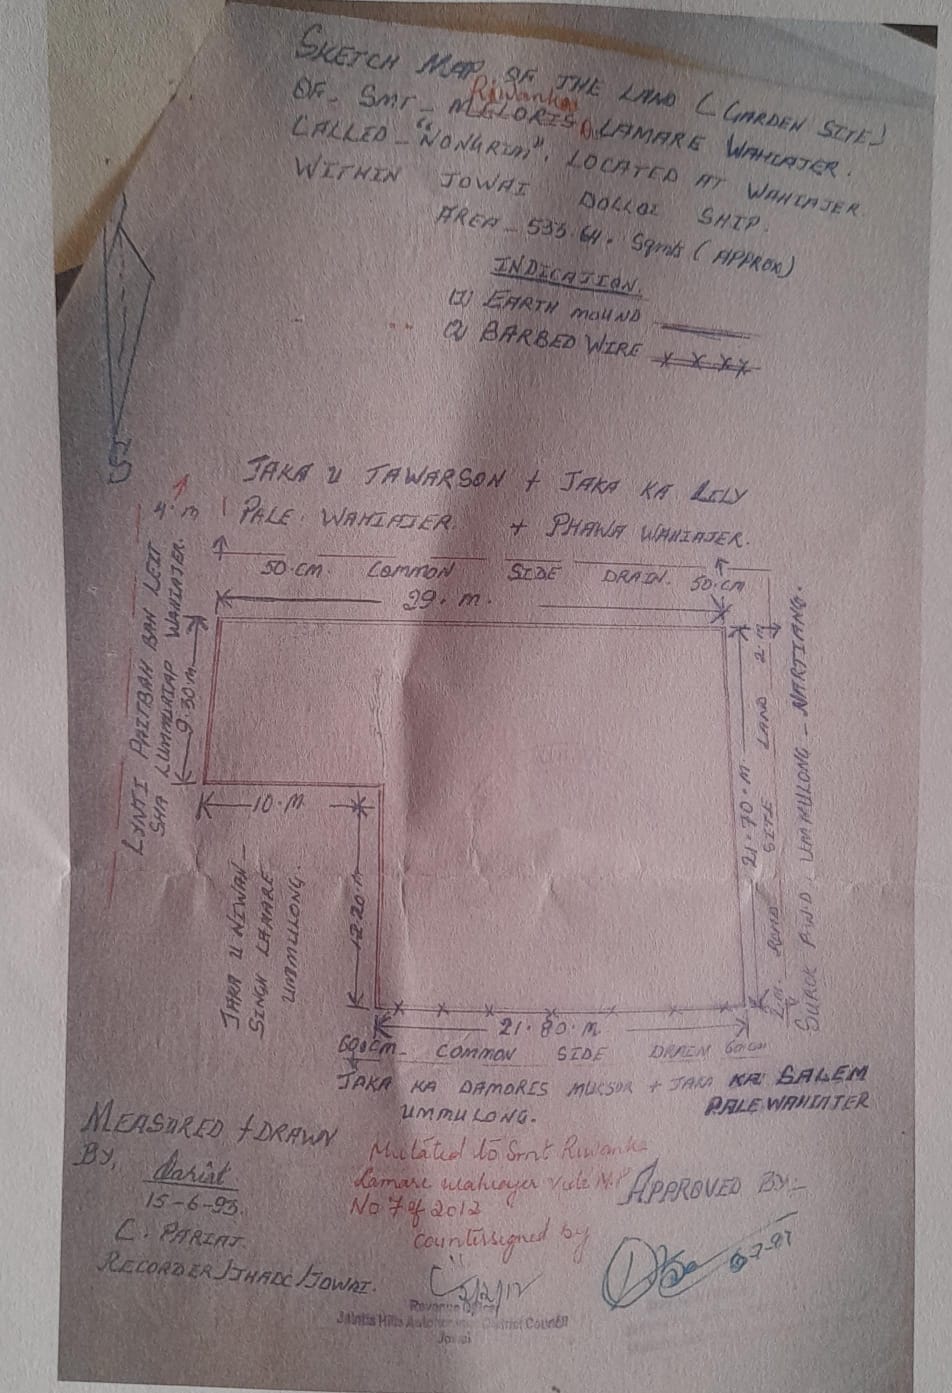 SKETCH MAP OF THE LAND (GARDEN SITE)
Riwanka
OF - SMT - MELORIS LAMARE WAHIAJER.
CALLED - "NONGRIM", LOCATED AT WAHIAJER.
WITHIN JOWAI DOLLOI SHIP.
AREA - 533.64. Sqmts (APPROX)
INDICATION.
(1) EARTH MOUND
(2) BARBED WIRE x x x x
JAKA U JAWARSON + JAKA KA LILY
PALE WAHIAJER. + PHAWA WAHIAJER.
4. m
50. CM. COMMON SIDE DRAIN. 50. CM
29. m.
LYNTI PAITBAH BAN LEIT
SHA LUMMURIAP WAHIAJER.
9.30 m
10. M
2. m
21.70. M.
ROAD SITE LAND
SUROK PWD, UMMULONG - NARTIANG.
JAKA U NIWAN -
SINGH LAMARE
UMMULONG.
12.20. M
21.80. M.
60. CM - COMMON SIDE DRAIN 60 CM
JAKA KA DAMORIS MUKSOR + JAKA KA SALEM
UMMULONG. PALE WAHIAJER
MEASURED + DRAWN
BY,
Pariat
15-6-93.
C. PARIAT.
RECORDER/JHADC/JOWAI.
Mutated to Smt Riwanka
Lamare Wahiajer vide N.P
No 7 of 2012
Countersigned by
2/2/12
Revenue Officer
Jaintia Hills Autonomous District Council
Jowai
APPROVED BY:-